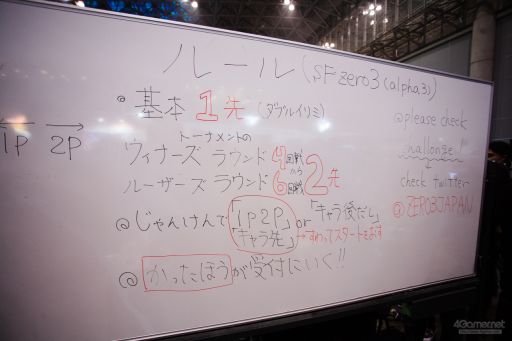 ルール (SF zero3 (alpha3))
◎ 基本 1先 (ダブルイリミ)
← →
1P 2P
トーナメントの
ウィナーズ ラウンド 4回戦
から
ルーザーズ ラウンド 6回戦
2先
◎ じゃんけんで 「1P2P」 or 「キャラ後だし」
「キャラ先」 →すわってスタートをおす
◎ かったほうが受付にいく!!
◎ please check
challonge!!
↓
check twitter
@ZERO3JAPAN
4Gamer.net